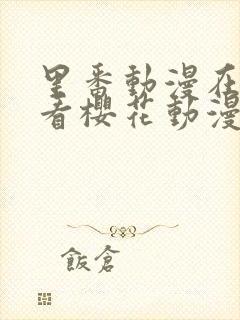 里番動漫在
看櫻花動漫
飯倉